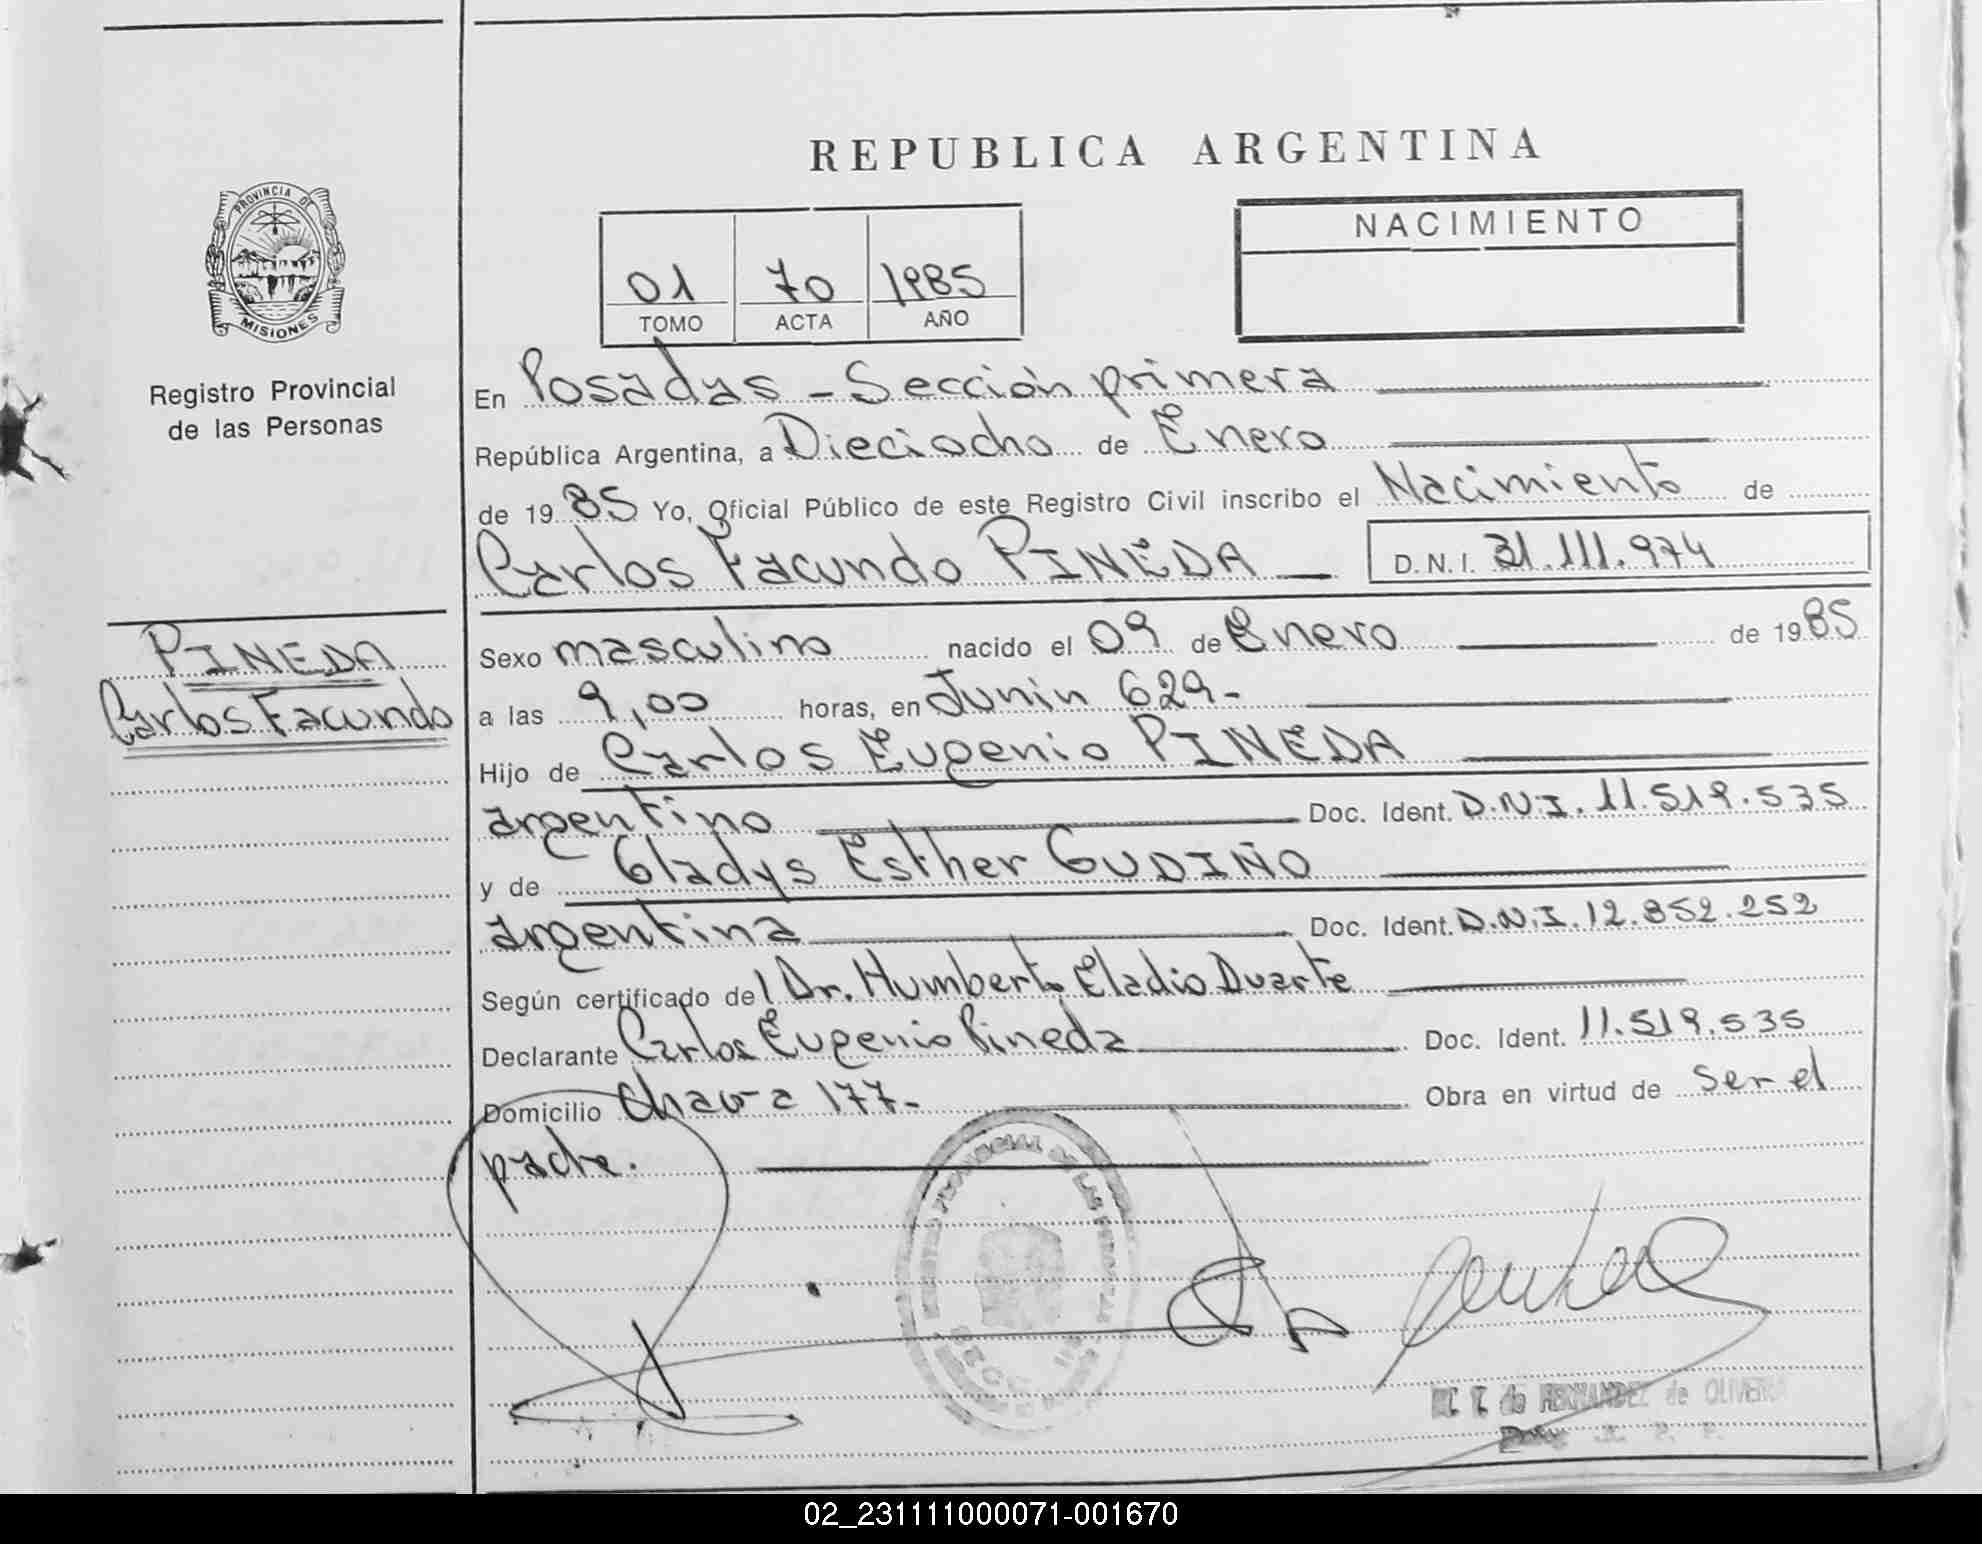 REPUBLICA ARGENTINA
PROVINCIA DE
MISIONES
Registro Provincial
de las Personas
01 70 1985
TOMO ACTA AÑO
NACIMIENTO
En Posadas - Sección primera
República Argentina, a Dieciocho de Enero
de 1985 Yo, Oficial Público de este Registro Civil inscribo el Nacimiento de
Carlos Facundo PINEDA D.N.I. 31.111.974
PINEDA
Carlos Facundo
Sexo masculino nacido el 09 de Enero de 1985
a las 9,00 horas, en Junin 629-
Hijo de Carlos Eugenio PINEDA
argentino Doc. Ident. D.N.I. 11.519.535
y de Gladys Esther GUDIÑO
argentina Doc. Ident. D.N.I. 12.852.252
Según certificado del Dr. Humberto Eladio Duarte
Declarante Carlos Eugenio Pineda Doc. Ident. 11.519.535
Domicilio 177- Obra en virtud de ser el
padre.
REGISTRO PROVINCIAL DE LAS PERSONAS
de FERNANDEZ de OLIVERA
02_231111000071-001670